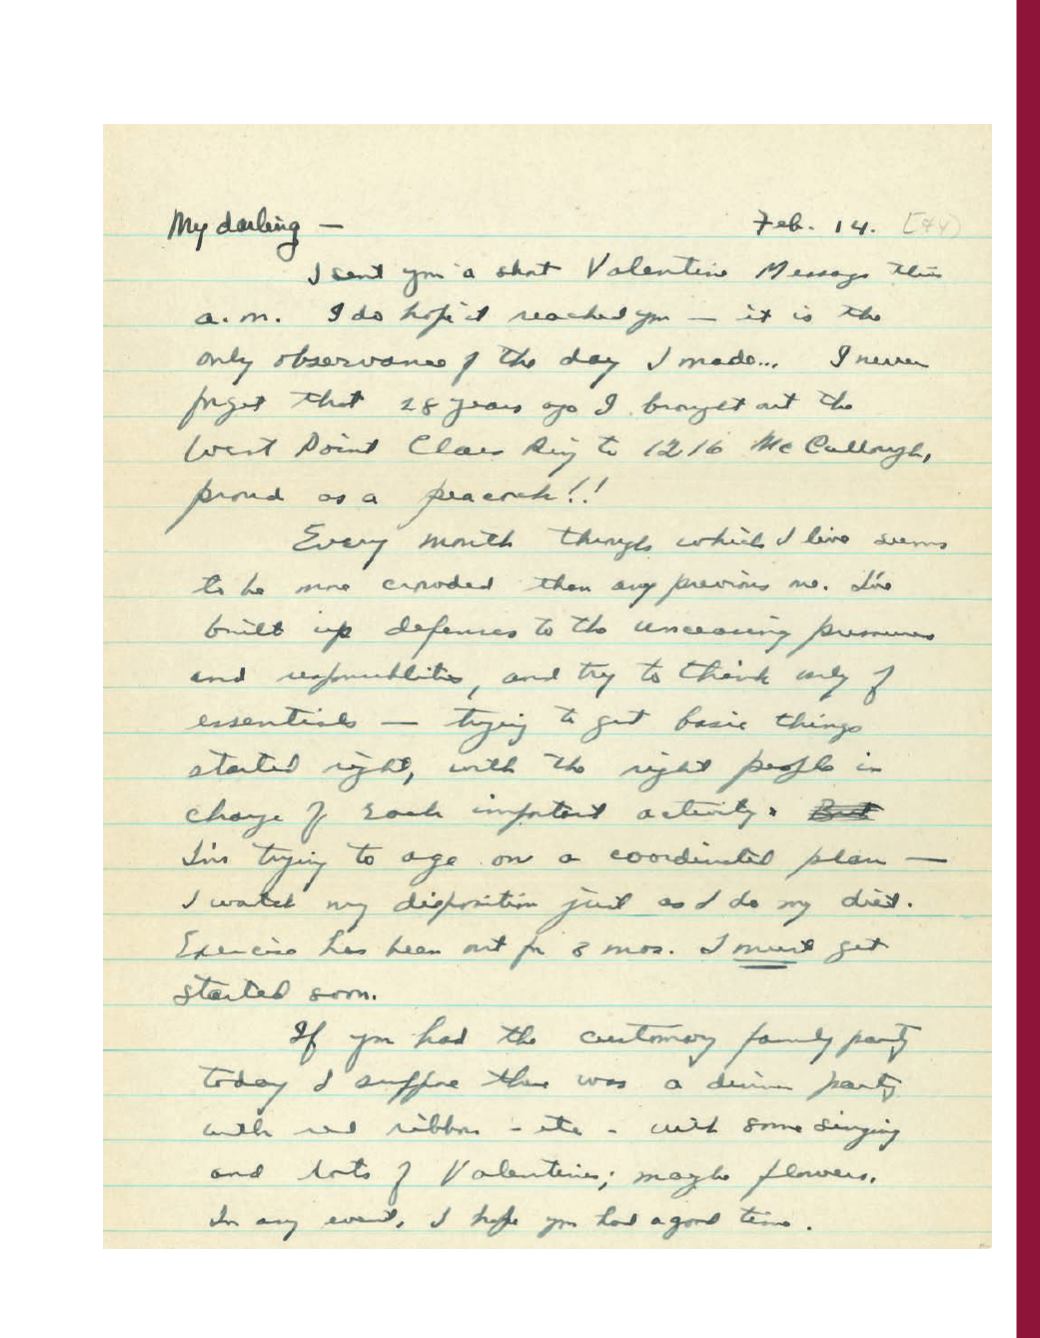 My darling — Feb. 14. [44]
I sent you a short Valentine Message this
a.m. I do hope it reached you — it is the
only observance of the day I made... I never
forget that 28 years ago I brought out the
West Point Class Ring to 1216 McCullough,
proud as a peacock!!
Every month through which I live seems
to be more crowded than any previous one. I've
built up defenses to the unceasing pressures
and responsibilities, and try to think only of
essentials — trying to get basic things
started right, with the right people in
charge of each important activity. But
I'm trying to age on a coordinated plan —
I watch my disposition just as I do my diet.
Exercise has been out for 3 mos. I must get
started soon.
If you had the customary family party
today I suppose there was a dinner party
with red ribbon - etc - with some singing
and lots of Valentines; maybe flowers.
In any event, I hope you had a good time.